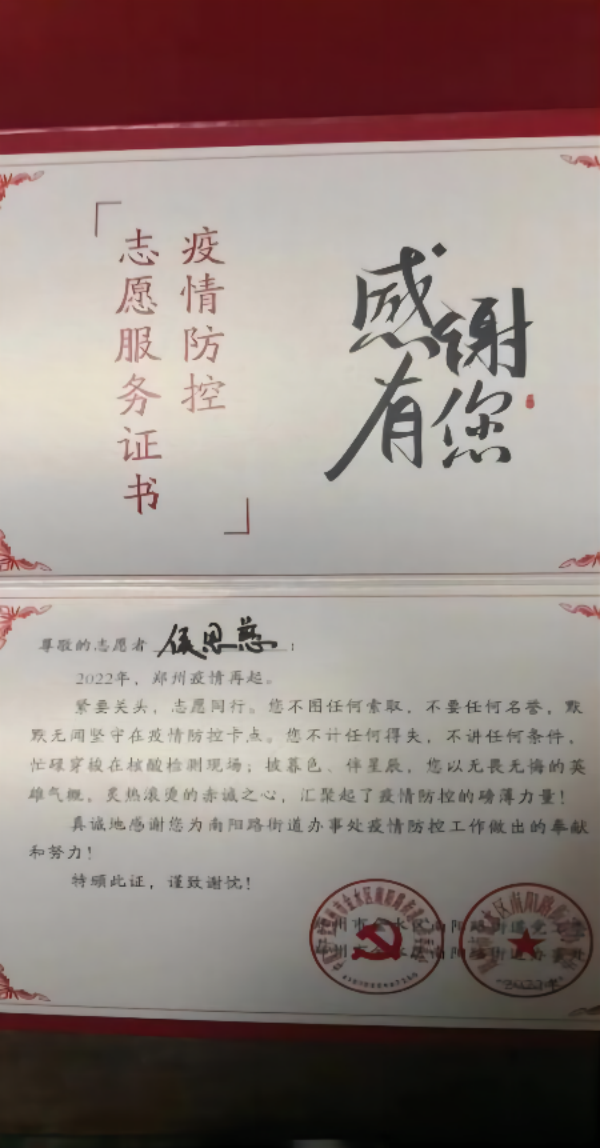 疫情防控
志愿服务证书
感谢
有您
尊敬的志愿者 侯思慈：
2022年，郑州疫情再起。
紧要关头，志愿同行。您不图任何索取，不要任何名誉，默
默无闻坚守在疫情防控卡点。您不计任何得失，不讲任何条件，
忙碌穿梭在核酸检测现场；披暮色、伴星辰，您以无畏无悔的英
雄气概，炙热滚烫的赤诚之心，汇聚起了疫情防控的磅薄力量！
真诚地感谢您为南阳路街道办事处疫情防控工作做出的奉献
和努力！
特颁此证，谨致谢忱！
郑州市金水区南阳路街道党工委
郑州市金水区南阳路街道办事处
2022年